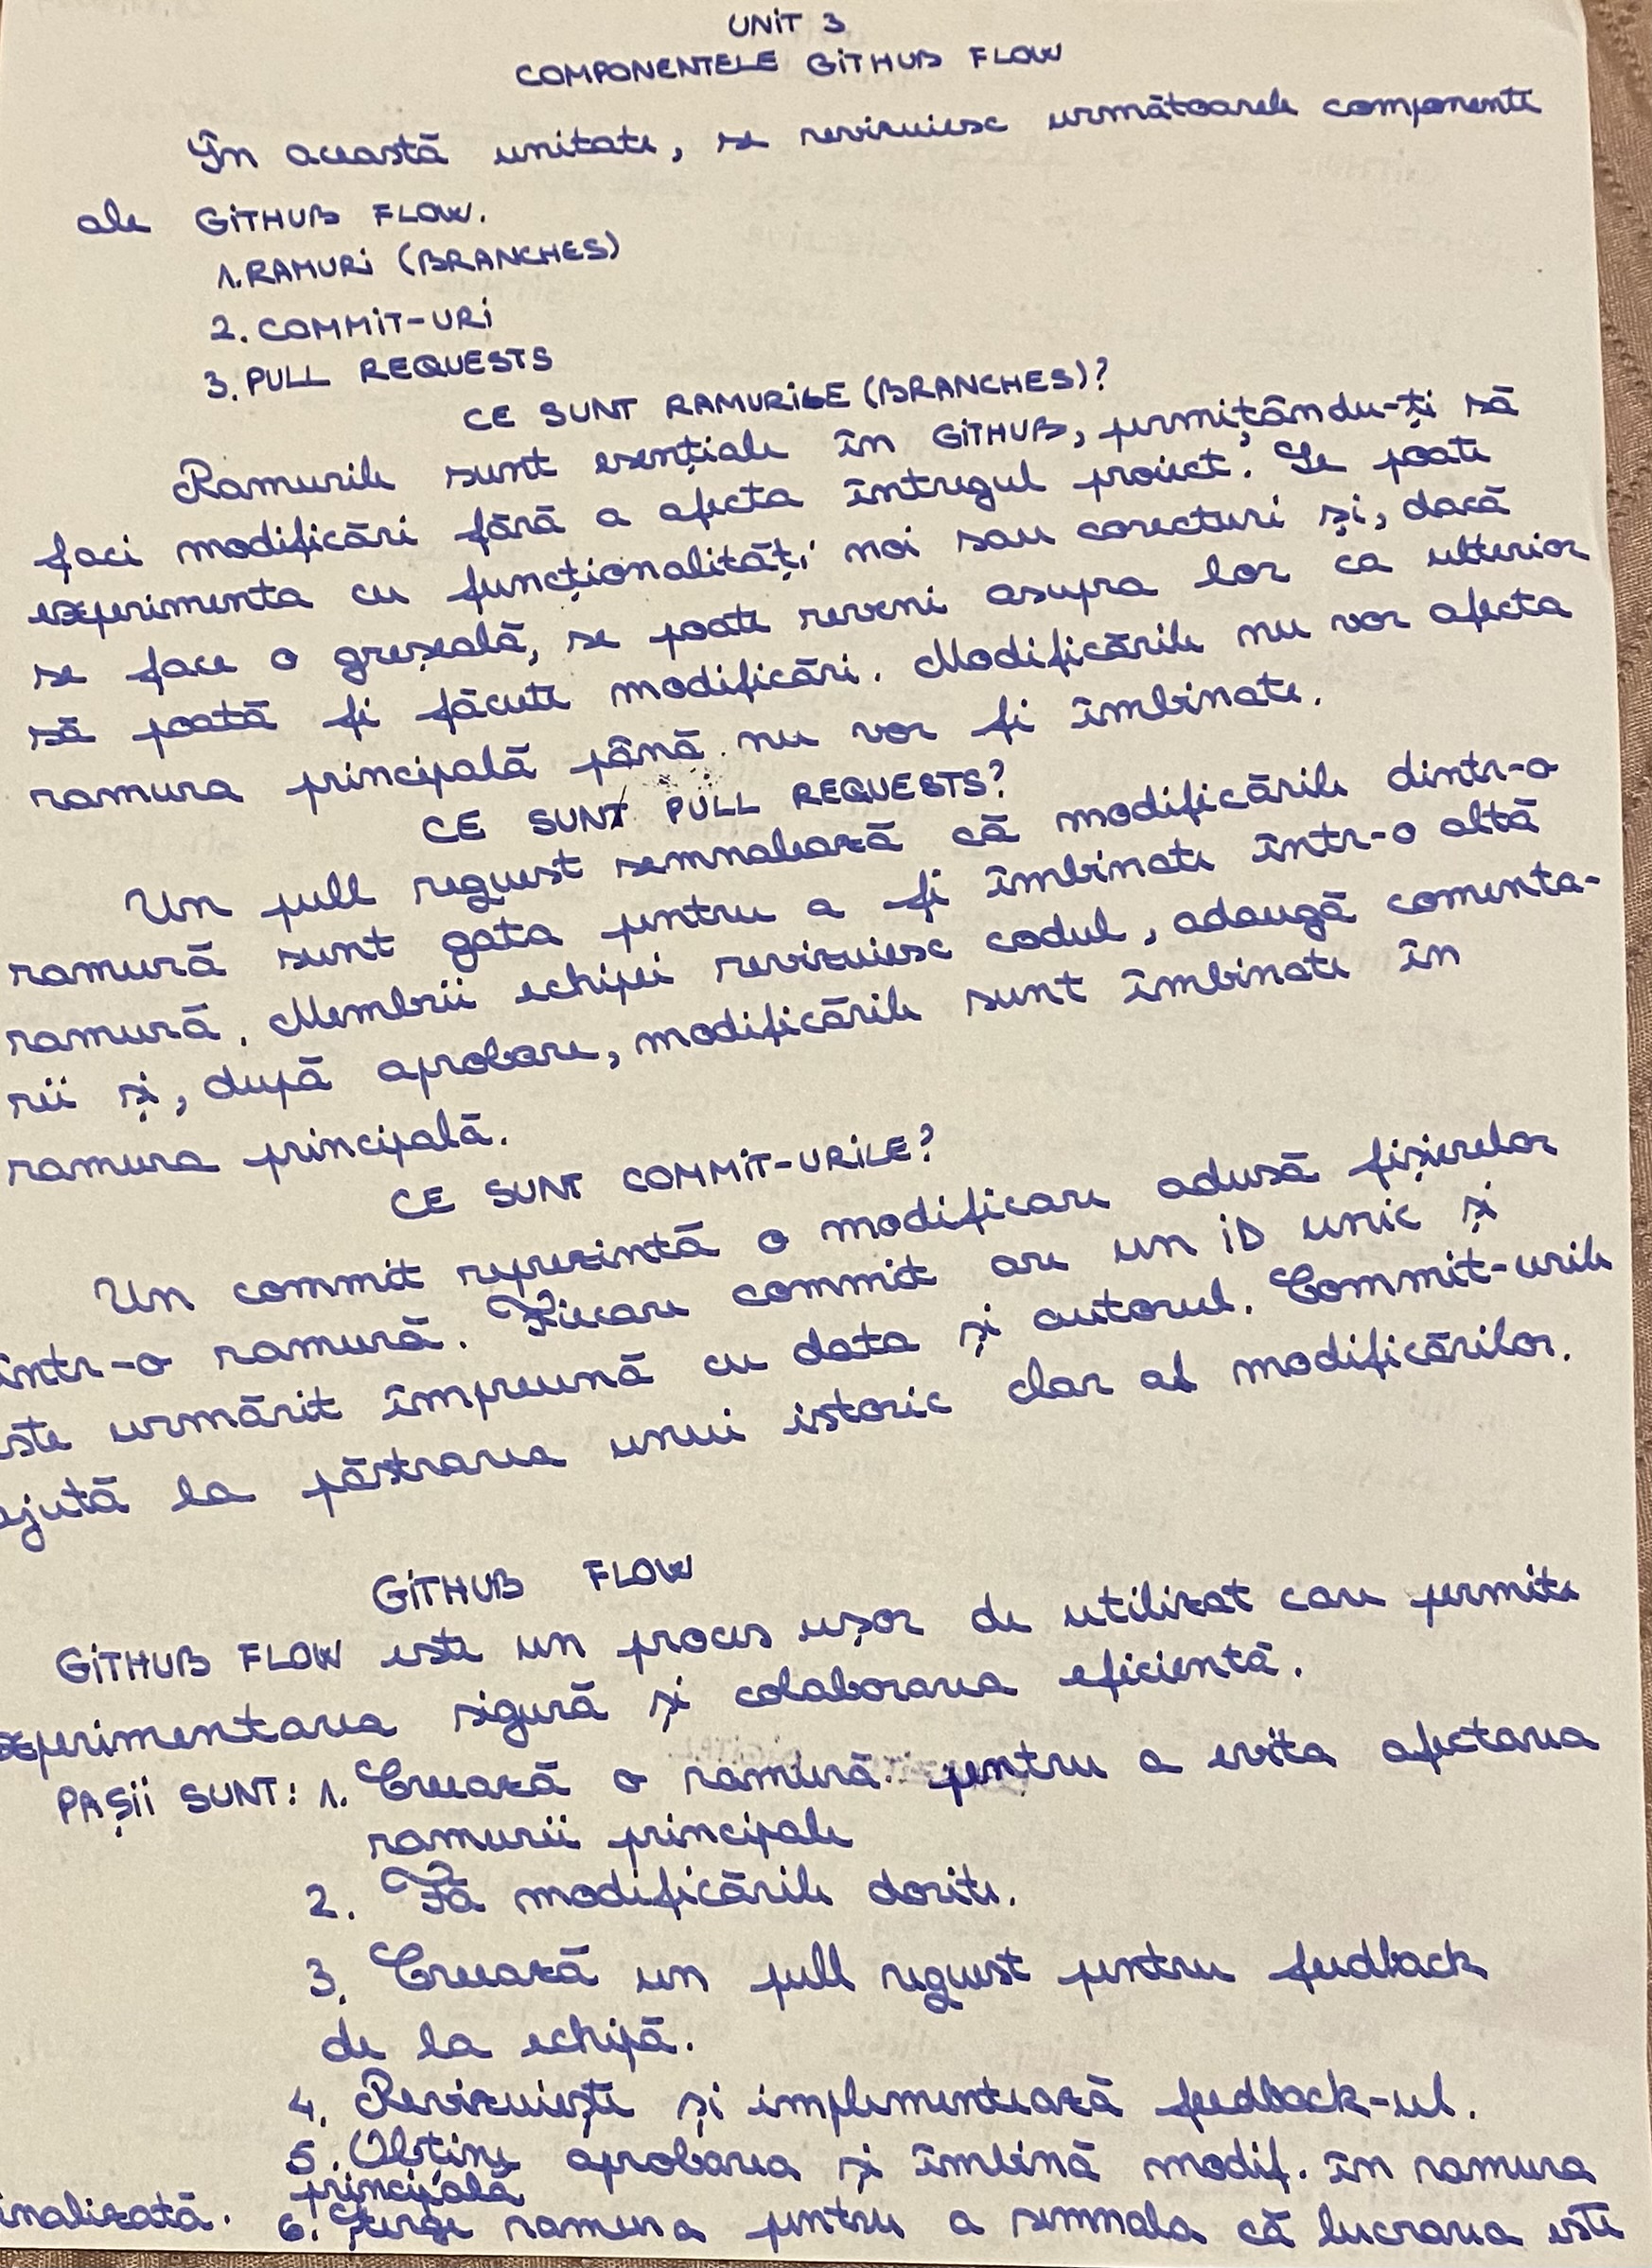 UNIT 3
COMPONENTELE GITHUB FLOW
În această unitate, se revizuiesc următoarele componente
ale GITHUB FLOW.
1. RAMURI (BRANCHES)
2. COMMIT-URI
3. PULL REQUESTS
CE SUNT RAMURILE (BRANCHES)?
Ramurile sunt esențiale în GITHUB, permițându-ți să
faci modificări fără a afecta întregul proiect. Se poate
experimenta cu funcționalități noi sau corecturi și, dacă
se face o greșeală, se poate reveni asupra lor ca ulterior
să poată fi făcute modificări. Modificările nu vor afecta
ramura principală până nu vor fi îmbinate.
CE SUNT PULL REQUESTS?
Un pull request semnalează că modificările dintr-o
ramură sunt gata pentru a fi îmbinate într-o altă
ramură. Membrii echipei revizuiesc codul, adaugă comenta-
rii și, după aprobare, modificările sunt îmbinate în
ramura principală.
CE SUNT COMMIT-URILE?
Un commit reprezintă o modificare adusă fișierelor
într-o ramură. Fiecare commit are un ID unic și
ste urmărit împreună cu data și autorul. Commit-urile
ajută la păstrarea unui istoric clar al modificărilor.
GITHUB FLOW
GITHUB FLOW este un proces ușor de utilizat care permite
xperimentarea sigură și colaborarea eficientă.
PAȘII SUNT: 1. Creează o ramură pentru a evita afectarea
ramurii principale
2. Fă modificările dorite.
3. Creează un pull request pentru feedback
de la echipă.
4. Revizuiește și implementează feedback-ul.
5. Obține aprobarea și îmbină modif. în ramura
principală
6. Șterge ramura pentru a semnala că lucrarea este
inalizată.